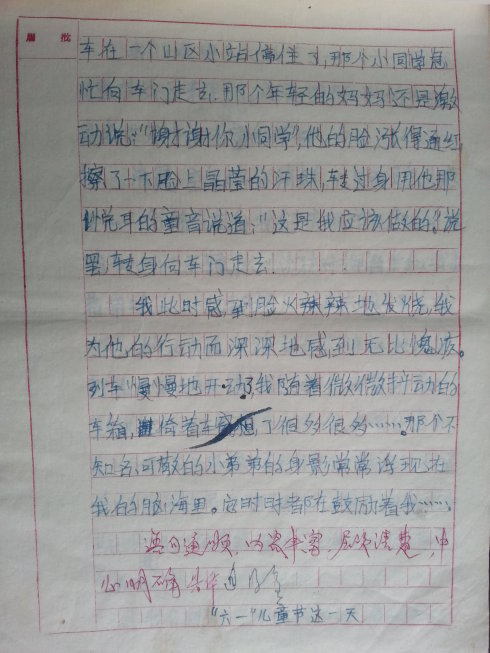 眉 批
车在一个山区小站停住了,那个小同学急
忙向车门走去.那个年轻的妈妈还是激
动说:"谢谢你小同学",他的脸涨得通红
擦了一下脸上晶莹的汗珠,转过身用他那
悦耳的童音说道:"这是我应该做的."说
罢,转身向车门走去.
我此时感到脸火辣辣地发烧,我
为他的行动而深深地感到无比愧疚。
列车慢慢地开动了,我随着微微抖动的
车箱,倚着车想了很多很多……。那个不
知名可敬的小弟弟的身影常常浮现在
我的脑海里。应时时都在鼓励着我……
语句通顺,内容丰富,层次清楚,中
心明确
"六一"儿童节这一天